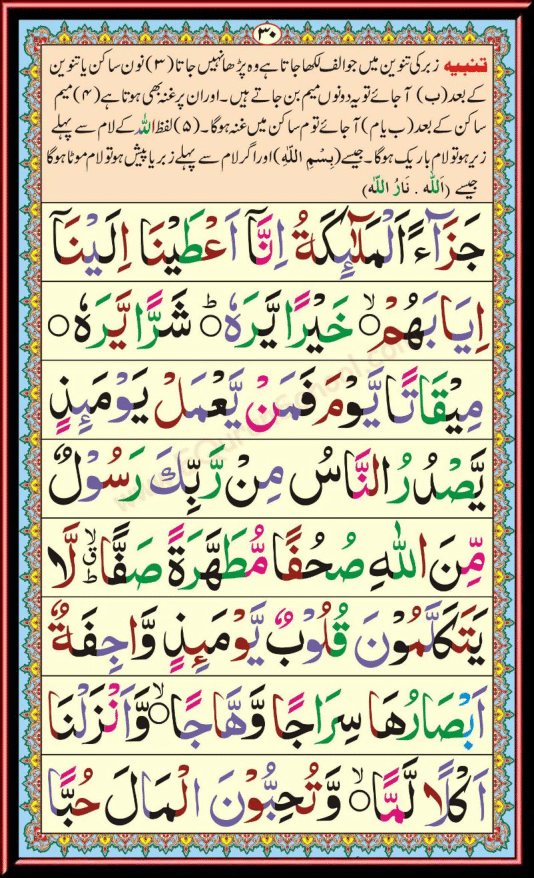 ٣٠
تنبیہ زبر کی تنوین میں جو الف لکھا جاتا ہے وہ پڑھا نہیں جاتا (٣) نون ساکن یا تنوین
کے بعد (ب) آجائے تو یہ دونوں میم بن جاتے ہیں۔ اور ان پر غنہ بھی ہوتا ہے (۴) میم
ساکن کے بعد (ب یا م) آجائے تو م ساکن میں غنہ ہوگا۔ (۵) لفظ اللہ کے لام سے پہلے
زیر ہو تو لام باریک ہوگا۔ جیسے (بِسْمِ اللّٰهِ) اور اگر لام سے پہلے زبر یا پیش ہو تو لام موٹا ہوگا
جیسے (اَللّٰه ۔ نَارُ اللّٰه)
جَزَآءً اَلْمَلٰٓئِكَةُ اِنَّآ اَعْطَيْنَا اِلَيْنَآ
اِيَابَهُمْ ۙ○ خَيْرًا يَّرَهٗ ؕ○ شَرًّا يَّرَهٗ ○
مِيْقَاتًا يَّوْمَ فَمَنْ يَّعْمَلْ يَوْمَئِذٍ
يَّصْدُرُ النَّاسُ مِنْ رَّبِّكَ رَسُوْلٌ
مِّنَ اللّٰهِ صُحُفًا مُّطَهَّرَةً صَفًّا ۙق ؕ لَّا
يَتَكَلَّمُوْنَ قُلُوْبٌ يَّوْمَئِذٍ وَّاجِفَةٌ
اَبْصَارُهَا سِرَاجًا وَّهَّاجًا ۙ○ وَّاَنْزَلْنَا
اَكْلًا لَّمًّا ۙ○ وَّتُحِبُّوْنَ الْمَالَ حُبًّا